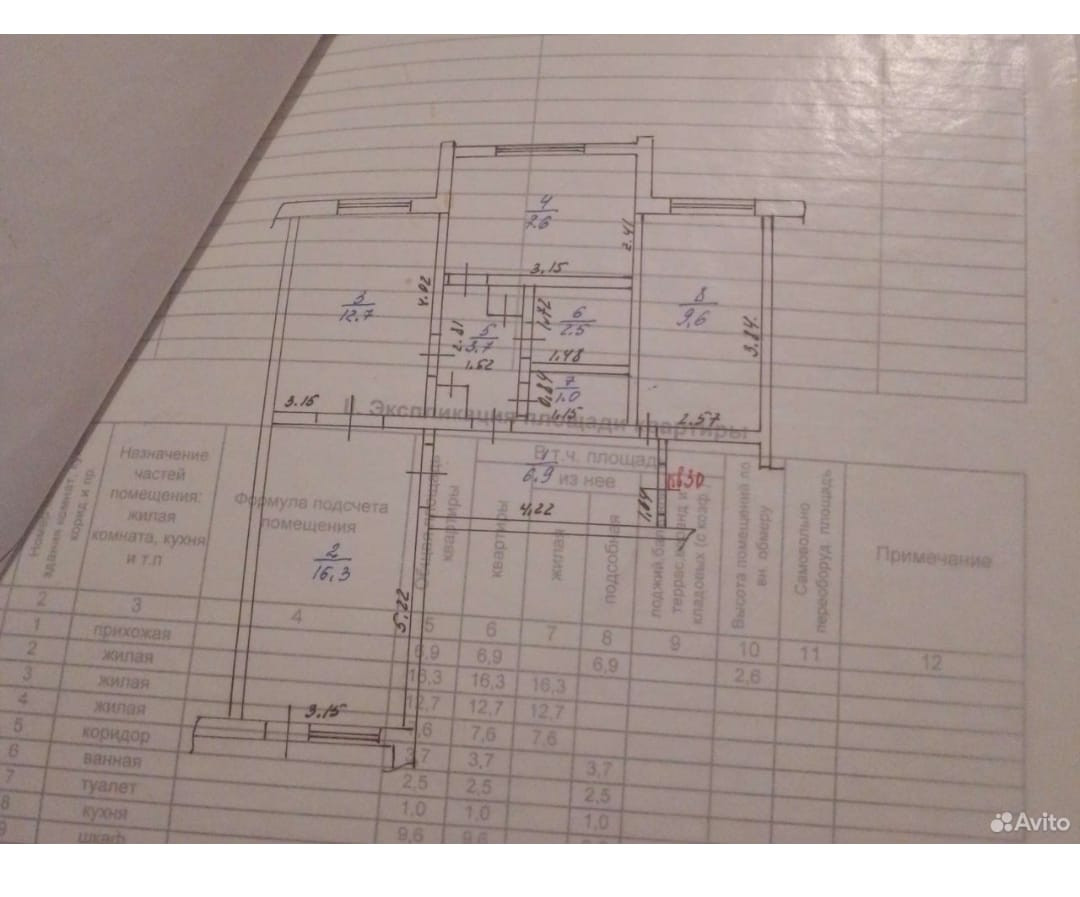 4
7.6
2.41
3.15
3
12.7
4.02
8
9.6
3.84
6
2.5
1.72
2.81
5
3.7
1.52
1.48
0.84
7
1.0
1.15
3.15
2.57
II. Экспликация площади квартиры
1
6.9
В т.ч. площадь
из нее
кв30
4.22
1.84
2
16.3
5.22
3.15
Назначение
частей
помещения:
жилая
комната, кухня
и т.п
Формула подсчета
помещения
Общая площадь
квартиры
квартиры
жилая
подсобная
Высота помещений по
вн. обмеру
Самовольно
переоборуд. площадь
Примечание
2 3 4 5 6 7 8 9 10 11 12
1 прихожая 6,9 6,9 6,9 2,6
2 жилая 16,3 16,3 16,3
3 жилая 12,7 12,7 12,7
4 жилая 7,6 7,6
5 коридор 3,7 3,7
6 ванная 2,5 2,5 2,5
7 туалет 1,0 1,0 1,0
8 кухня 9,6 9,6
9 шкаф
Avito